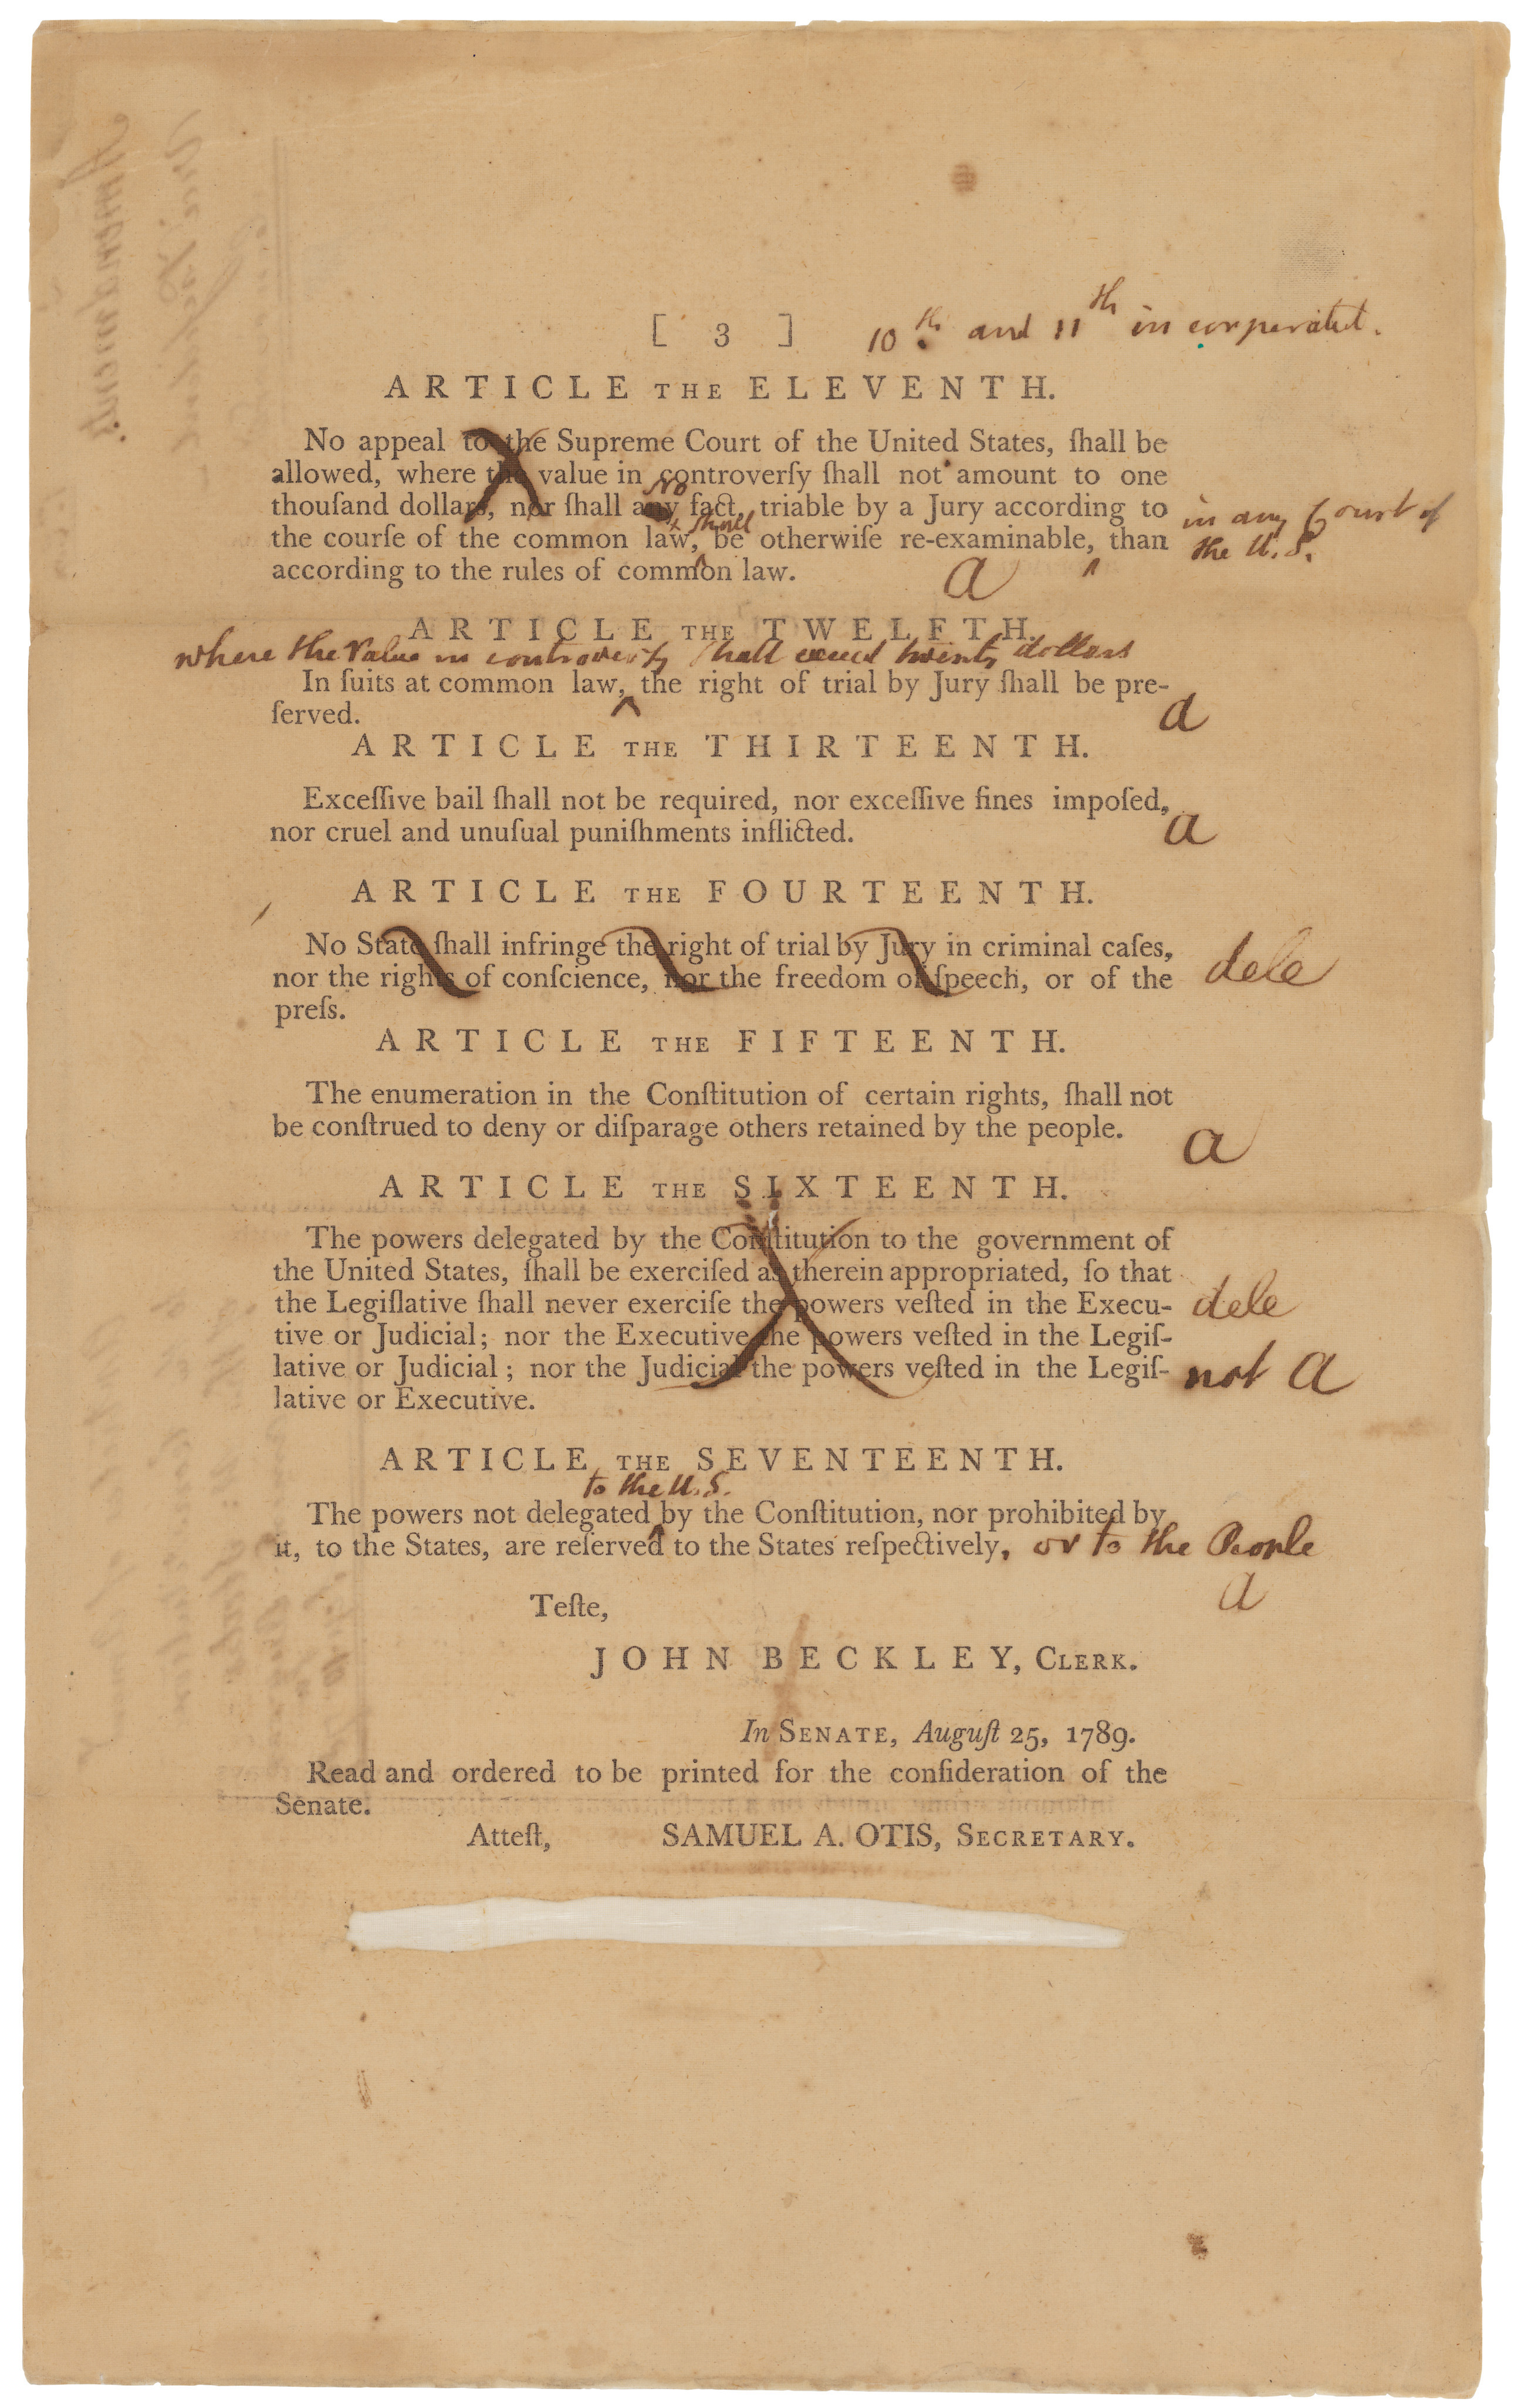 [ 3 ] 10th and 11th in corperated.
ARTICLE THE ELEVENTH.
No appeal to the Supreme Court of the United States, ſhall be
allowed, where the value in controverſy ſhall not amount to one
No
thouſand dollars, nor ſhall any fact, triable by a Jury according to in any Court of
shall
the courſe of the common law, be otherwiſe re-examinable, ^ than the U. S.
according to the rules of common law. a
ARTICLE THE TWELFTH.
where the Value in controversy shall exceed twenty dollars
In ſuits at common law, ^ the right of trial by Jury ſhall be pre-
ſerved. a
ARTICLE THE THIRTEENTH.
Exceſſive bail ſhall not be required, nor exceſſive fines impoſed,
nor cruel and unuſual puniſhments inflicted. a
ARTICLE THE FOURTEENTH.
No State ſhall infringe the right of trial by Jury in criminal caſes,
nor the rights of conſcience, nor the freedom of ſpeech, or of the dele
preſs.
ARTICLE THE FIFTEENTH.
The enumeration in the Conſtitution of certain rights, ſhall not
be conſtrued to deny or diſparage others retained by the people. a
ARTICLE THE SIXTEENTH.
The powers delegated by the Conſtitution to the government of
the United States, ſhall be exerciſed as therein appropriated, ſo that
the Legiſlative ſhall never exerciſe the powers veſted in the Execu- dele
tive or Judicial; nor the Executive the powers veſted in the Legiſ-
lative or Judicial; nor the Judicial the powers veſted in the Legiſ- not a
lative or Executive.
ARTICLE THE SEVENTEENTH.
to the U.S.
The powers not delegated ^ by the Conſtitution, nor prohibited by
it, to the States, are reſerved to the States reſpectively, or to the People
a
Teſte,
JOHN BECKLEY, CLERK.
In SENATE, Auguſt 25, 1789.
Read and ordered to be printed for the conſideration of the
Senate.
Atteſt, SAMUEL A. OTIS, SECRETARY.